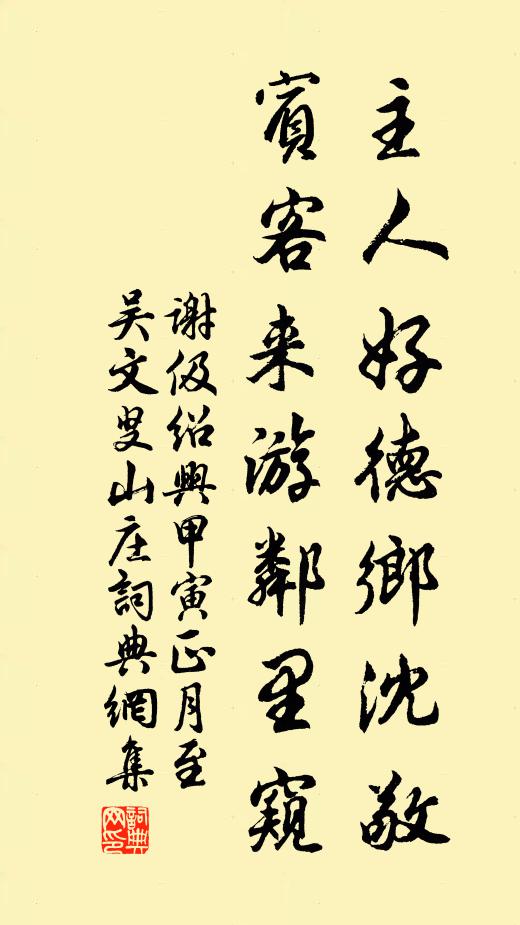 主人好德鄉沈敬
賓客来游鄰里窺
謝伋紹興甲寅正月至
吴文叟山庄詞典網集
詞典網印